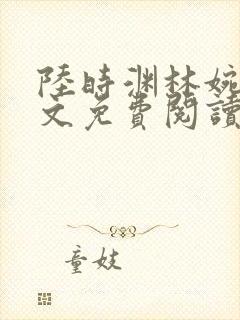 陸時渊林婉
文免費閱讀
童妓